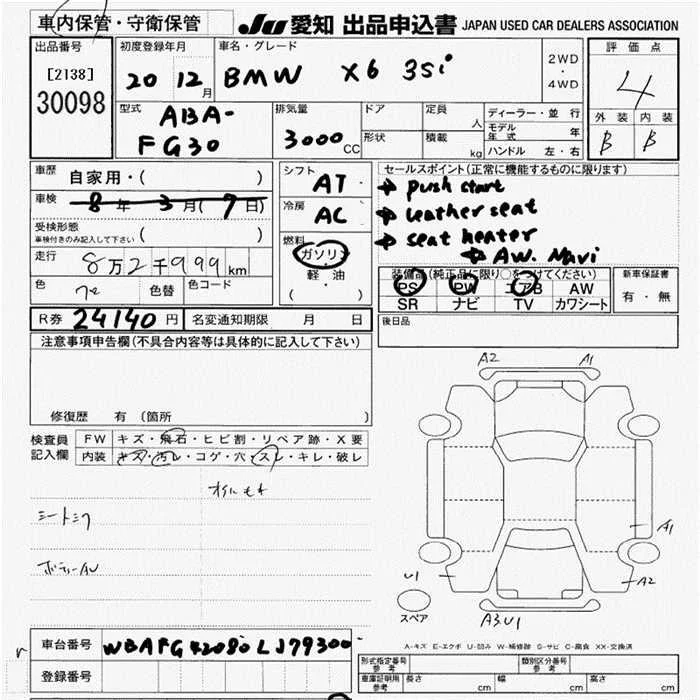 車内保管・守衛保管
JU 愛知 出品申込書 JAPAN USED CAR DEALERS ASSOCIATION
出品番号
[2138]
30098
初度登録年月
20 12月
車名・グレード
BMW X6 35i
2WD
・
4WD
評価点
4
外装 内装
B B
型式
ABA-
FG30
排気量
3000CC
ドア
形状
定員
人
積載
kg
ディーラー・並行
モデル年式 年
ハンドル 左・右
車歴
自家用・( )
車検
8年 3月(7日)
受検形態
車検付きのみ記入して下さい ( )
走行
8万2千999km
色 色替 色コード
R券 24140円
名変通知期限 月 日
シフト
AT
冷房
AC
燃料
ガソリン
軽・油
( ・ )
セールスポイント(正常に機能するものに限ります)
→ push start
→ Leather seat
→ seat heater
→ AW. Navi
装備品(純正品に限り○をつけてください)
PS PW エアB AW
SR ナビ TV カワシート
新車保証書
有・無
後日品
注意事項申告欄(不具合内容等は具体的に記入して下さい)
修復歴 有 (箇所 )
検査員
記入欄
FW キズ・飛石・ヒビ割・リペア跡・X要
内装 キズ・汚レ・コゲ・穴・スレ・キレ・破レ
A2 A1
A1
U1
A2
スペア
A3U1
A-キズ E-エクボ U-凹み W-補修跡 S-サビ C-腐食 XX-交換済
車台番号 WBAFG42080LJ79300
登録番号
形式指定番号
参考
類別区分番号
参考
車庫証明用
参考
長さ cm
幅 cm
高さ cm